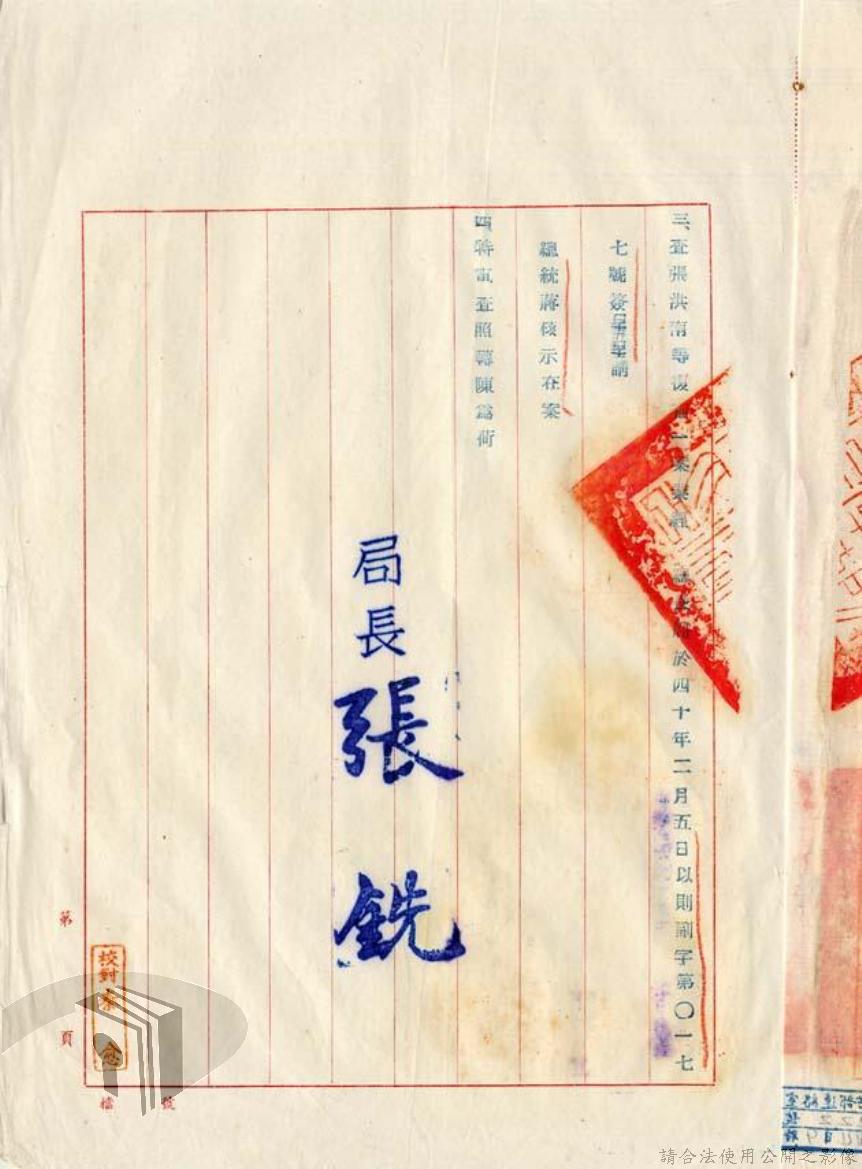 三、查張洪南等復一案業經於四十年二月五日以則副字第〇一七
七號簽請
總統蔣核示在案
四、特電查照轉陳為荷
局長
張銑
校對
第 頁
檔 號
請合法使用公開之影像